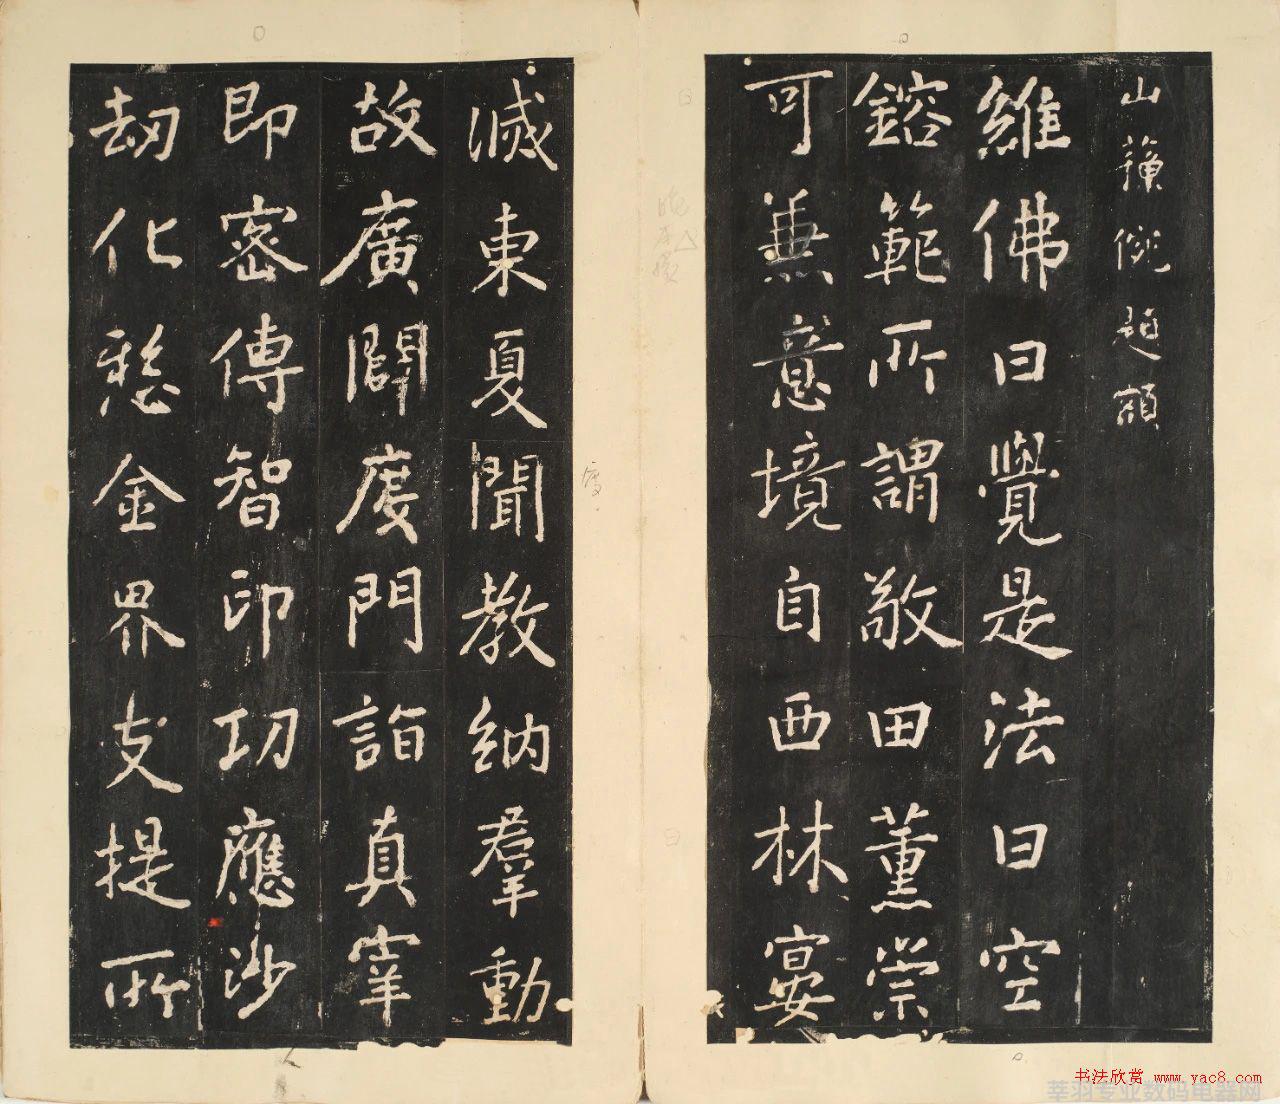 山蘓儻題額
維佛曰覺是法曰空
鎔範所謂敬田薰崇
可兼意境自西林宴
滅東夏聞教納羣動
故廣闢度門詣真宰
即密傳智印功應沙
劫化愁金界支提所
度
书法欣赏 www.yac8.com
莘羽专业数码电器网